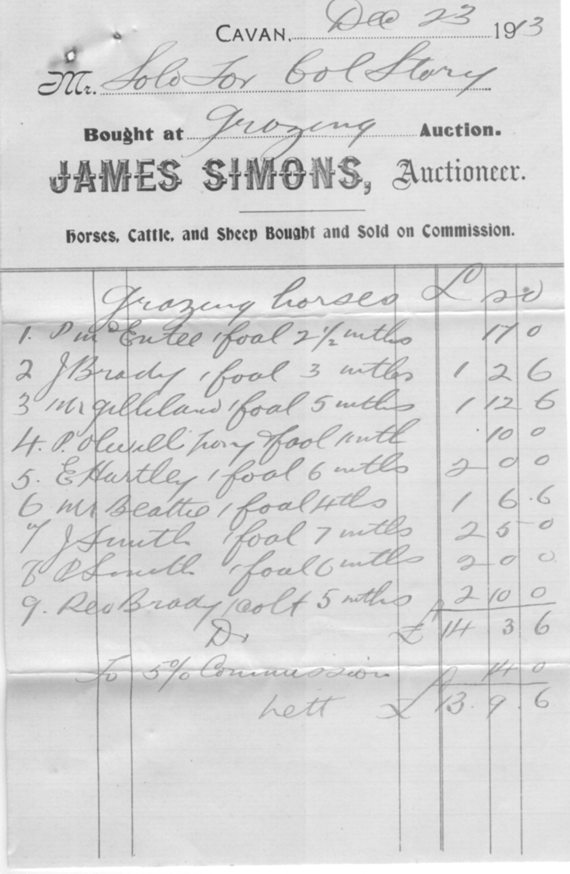 CAVAN, Dec 23 1913
Mr. Sold For Col Story
Bought at grazing Auction.
JAMES SIMONS, Auctioneer.
Horses, Cattle, and Sheep Bought and Sold on Commission.
grazing horses £ s d
1. P McEntee 1 foal 2½ mths 17 0
2 J Brady 1 foal 3 mths 1 2 6
3 Mr gilleland 1 foal 5 mths 1 12 6
4. P. pony & foal 1 mth 10 0
5. E Hartley 1 foal 6 mths 2 0 0
6 Mr Beattie 1 foal 4 1 6.6
7 J Smith 1 foal 7 mths 2 5 0
8 P Smith 1 foal 6 mths 2 0 0
9. Rev Brady 1 colt 5 mths 2 10 0
Dr £ 14 3 6
To 5% Commission 14 0
nett £ 13.9.6